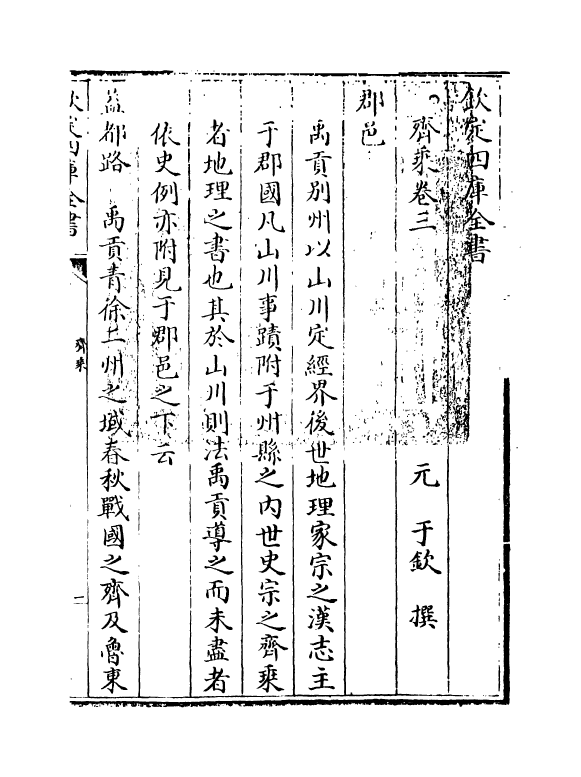 欽定四庫全書
齊乘卷三　　　　　元　于欽　撰
郡邑
禹貢别州以山川定經界後世地理家宗之漢志主
于郡國凡山川事蹟附于州縣之内世史宗之齊乘
者地理之書也其於山川則法禹貢導之而未盡者
依史例亦附見于郡邑之下云
益都路　禹貢青徐二州之域春秋戰國之齊及魯東
欽定四庫全書
齊乘